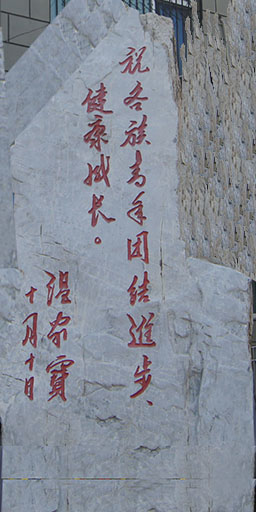 祝各族青年团结进步、
健康成长。
温家宝
十月十日